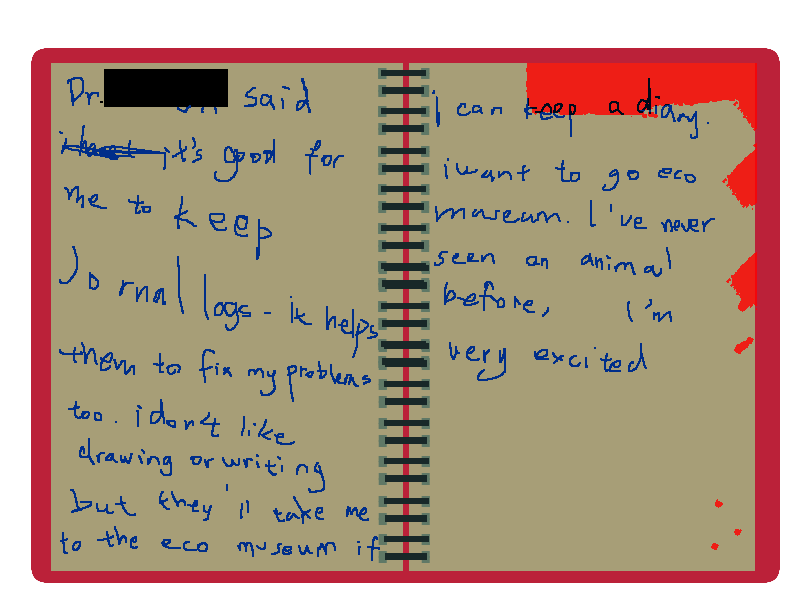 Dr. said
it's good for
me to keep
Jornal logs - it helps
them to fix my problems
too. i don't like
drawing or writing
but they'll take me
to the eco museum if
i can keep a diary.
i want to go eco
museum. I've never
seen an animal
before, I'm
very excited